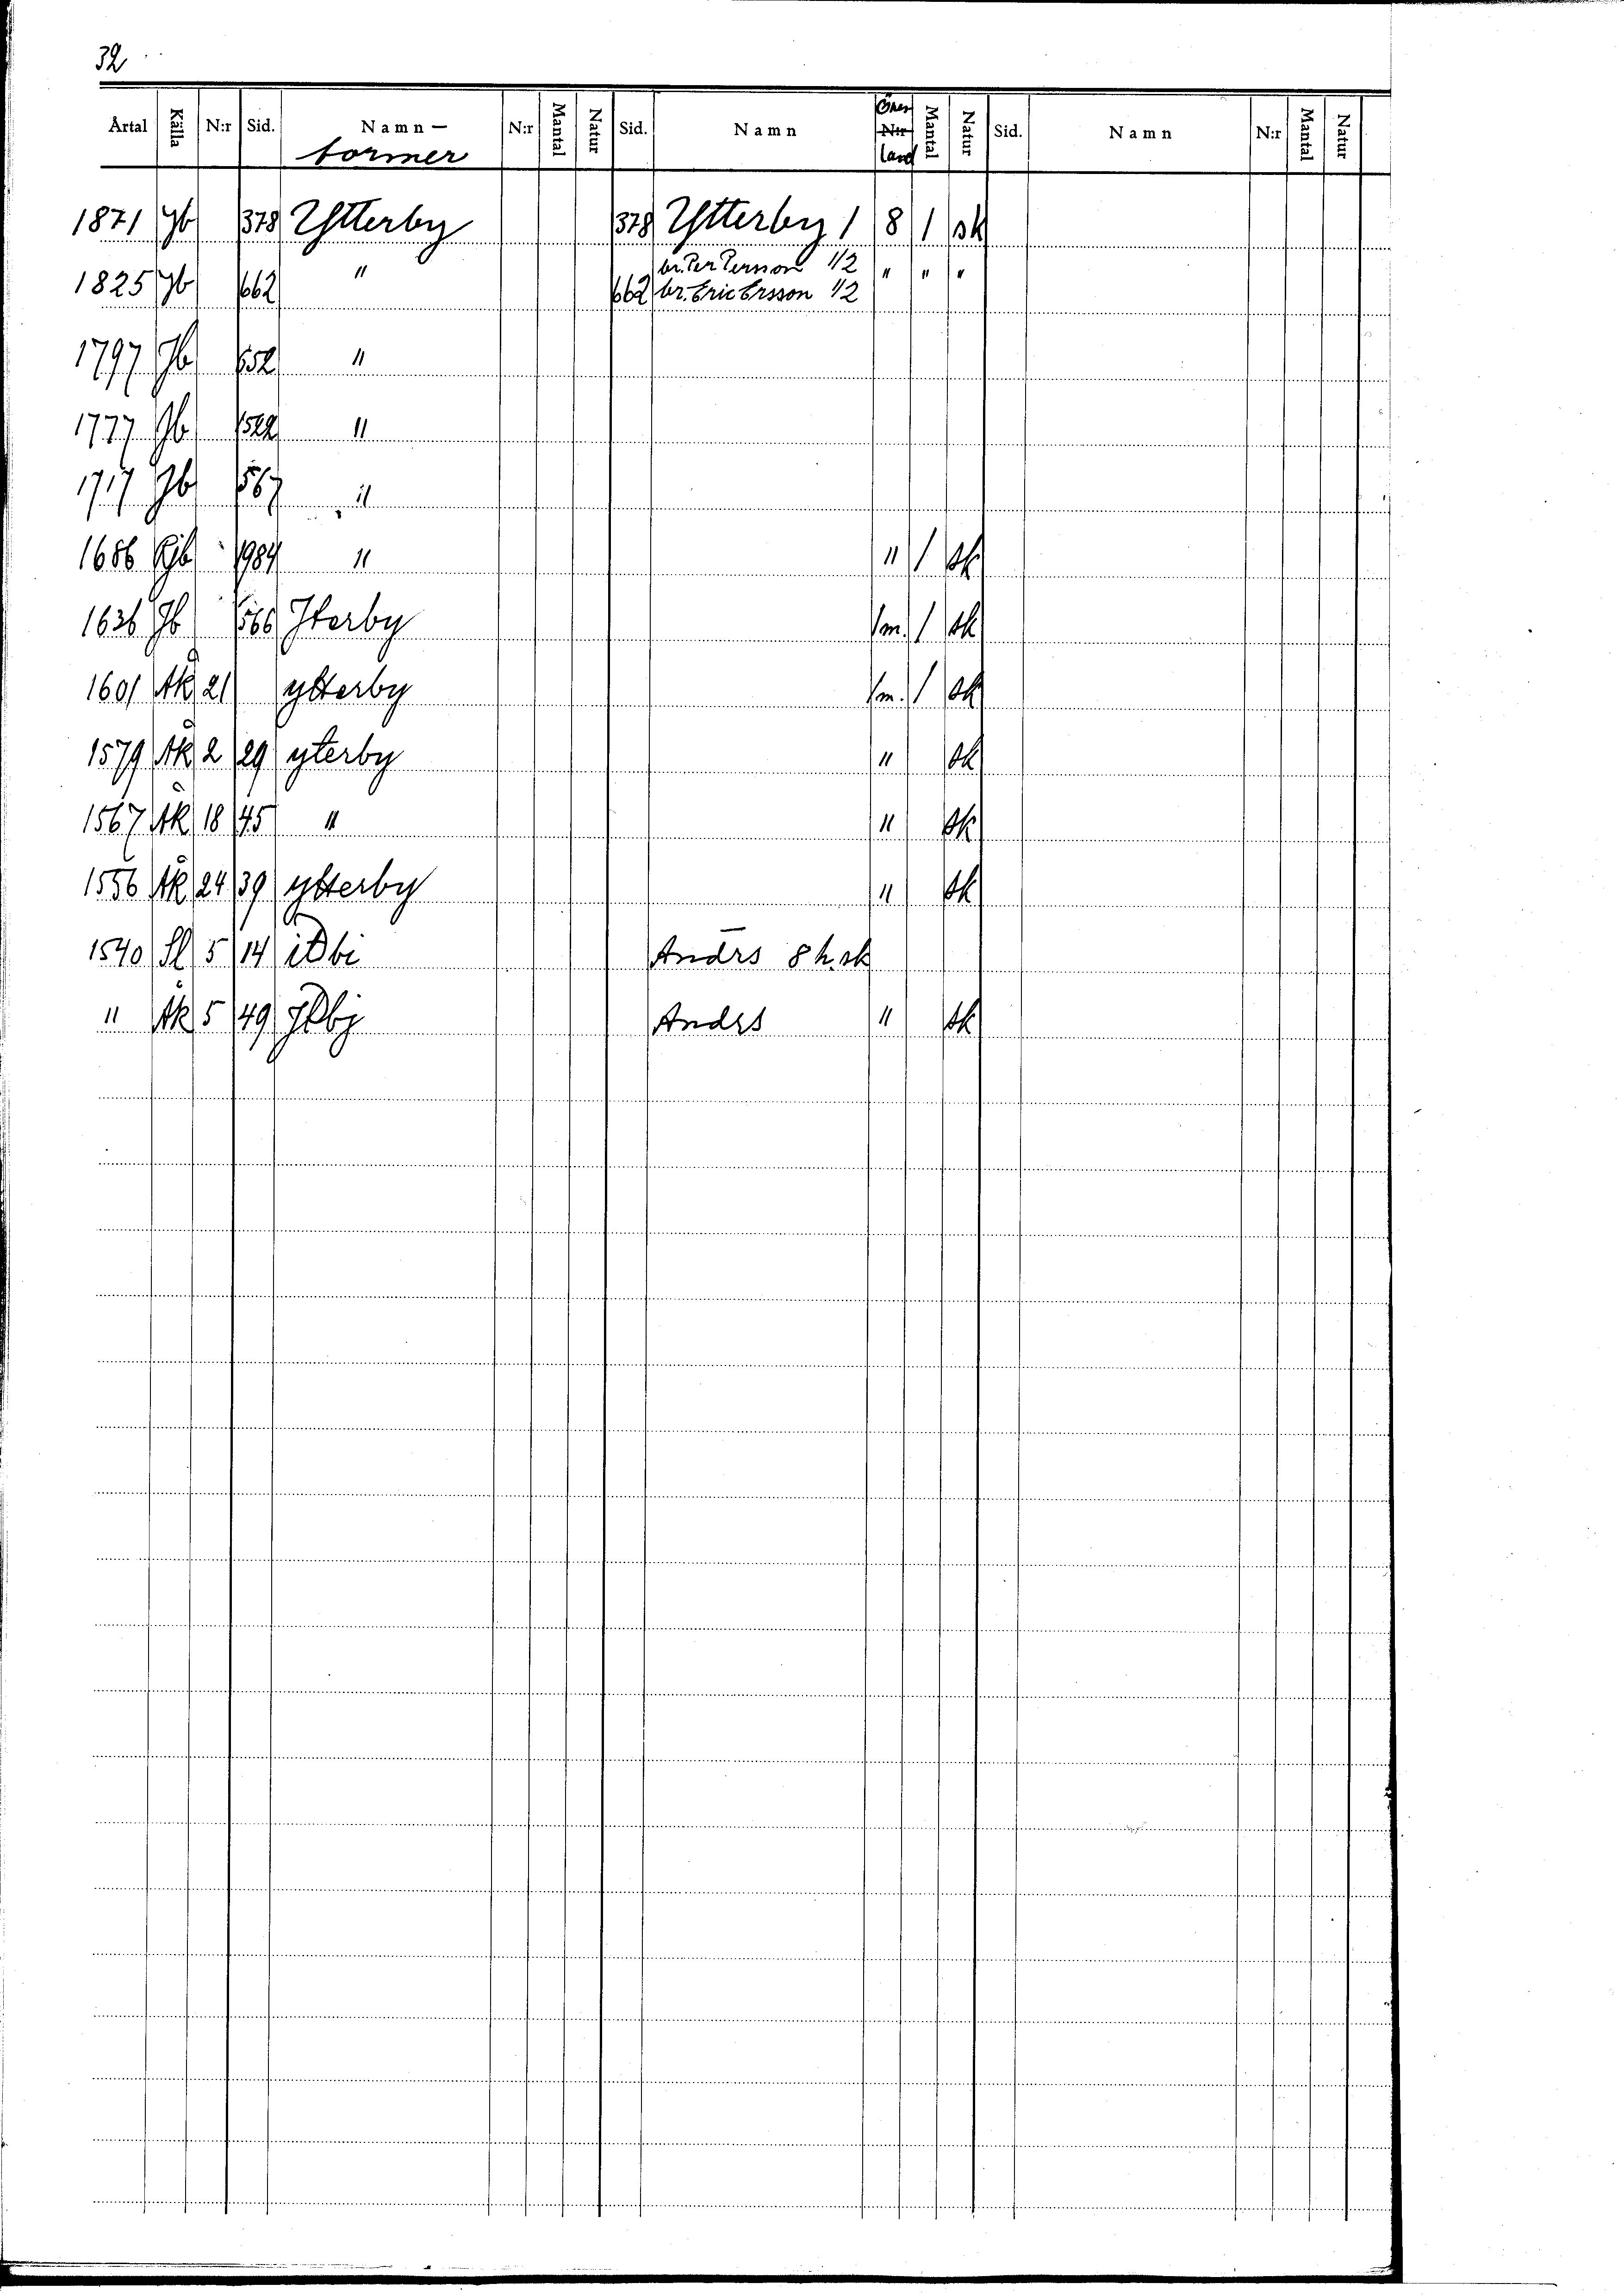 32
Årtal Källa N:r Sid. Namn- N:r Mantal Natur Sid. Namn Öres N:r Mantal Natur Sid. Namn N:r Mantal Natur
former land
1871 Jb 378 Ytterby 378 Ytterby 1 8 1 sk
" br. Per Person 1/2 " " "
1825 Jb 662 662 br. Eric Ersson 1/2
1797 Jb 652 "
1777 Jb 522 "
1717 Jb 567 "
1686 Jb 984 " " 1 sk
1636 Jb 566 Jterby 1m. 1 sk
1601 Åk 21 ytterby 1m. 1 sk
1579 Åk 2 29 yterby " sk
1567 Åk 18 45 " " sk
1556 Åk 24 39 ytterby " sk
1540 Sl 5 14 Andrs 8 h. sk
" Åk 5 49 Andrs " sk